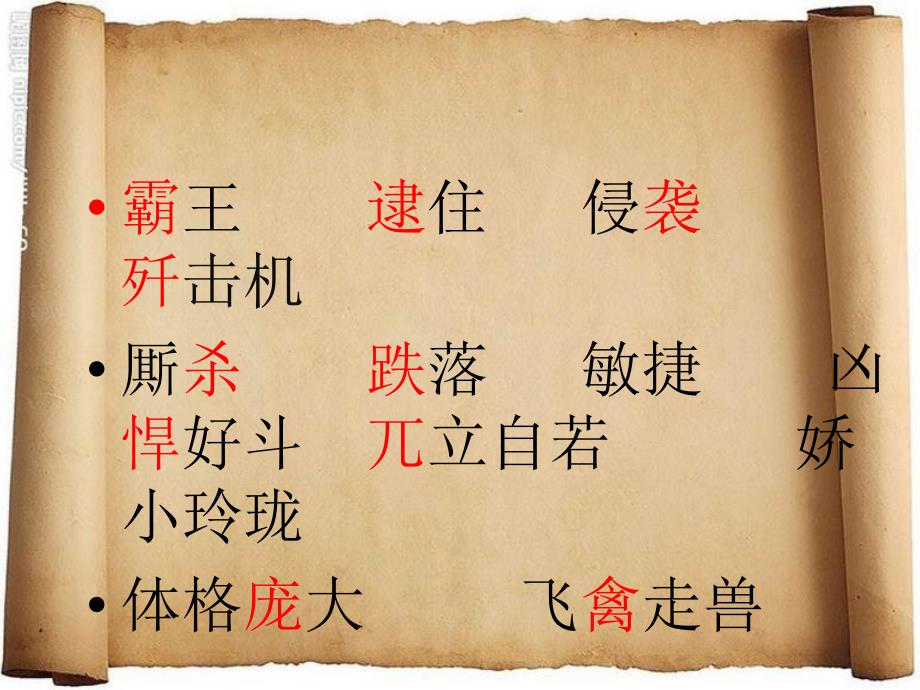 • 霸王 逮住 侵袭
歼击机
• 厮杀 跌落 敏捷 凶
悍好斗 兀立自若 娇
小玲珑
• 体格庞大 飞禽走兽